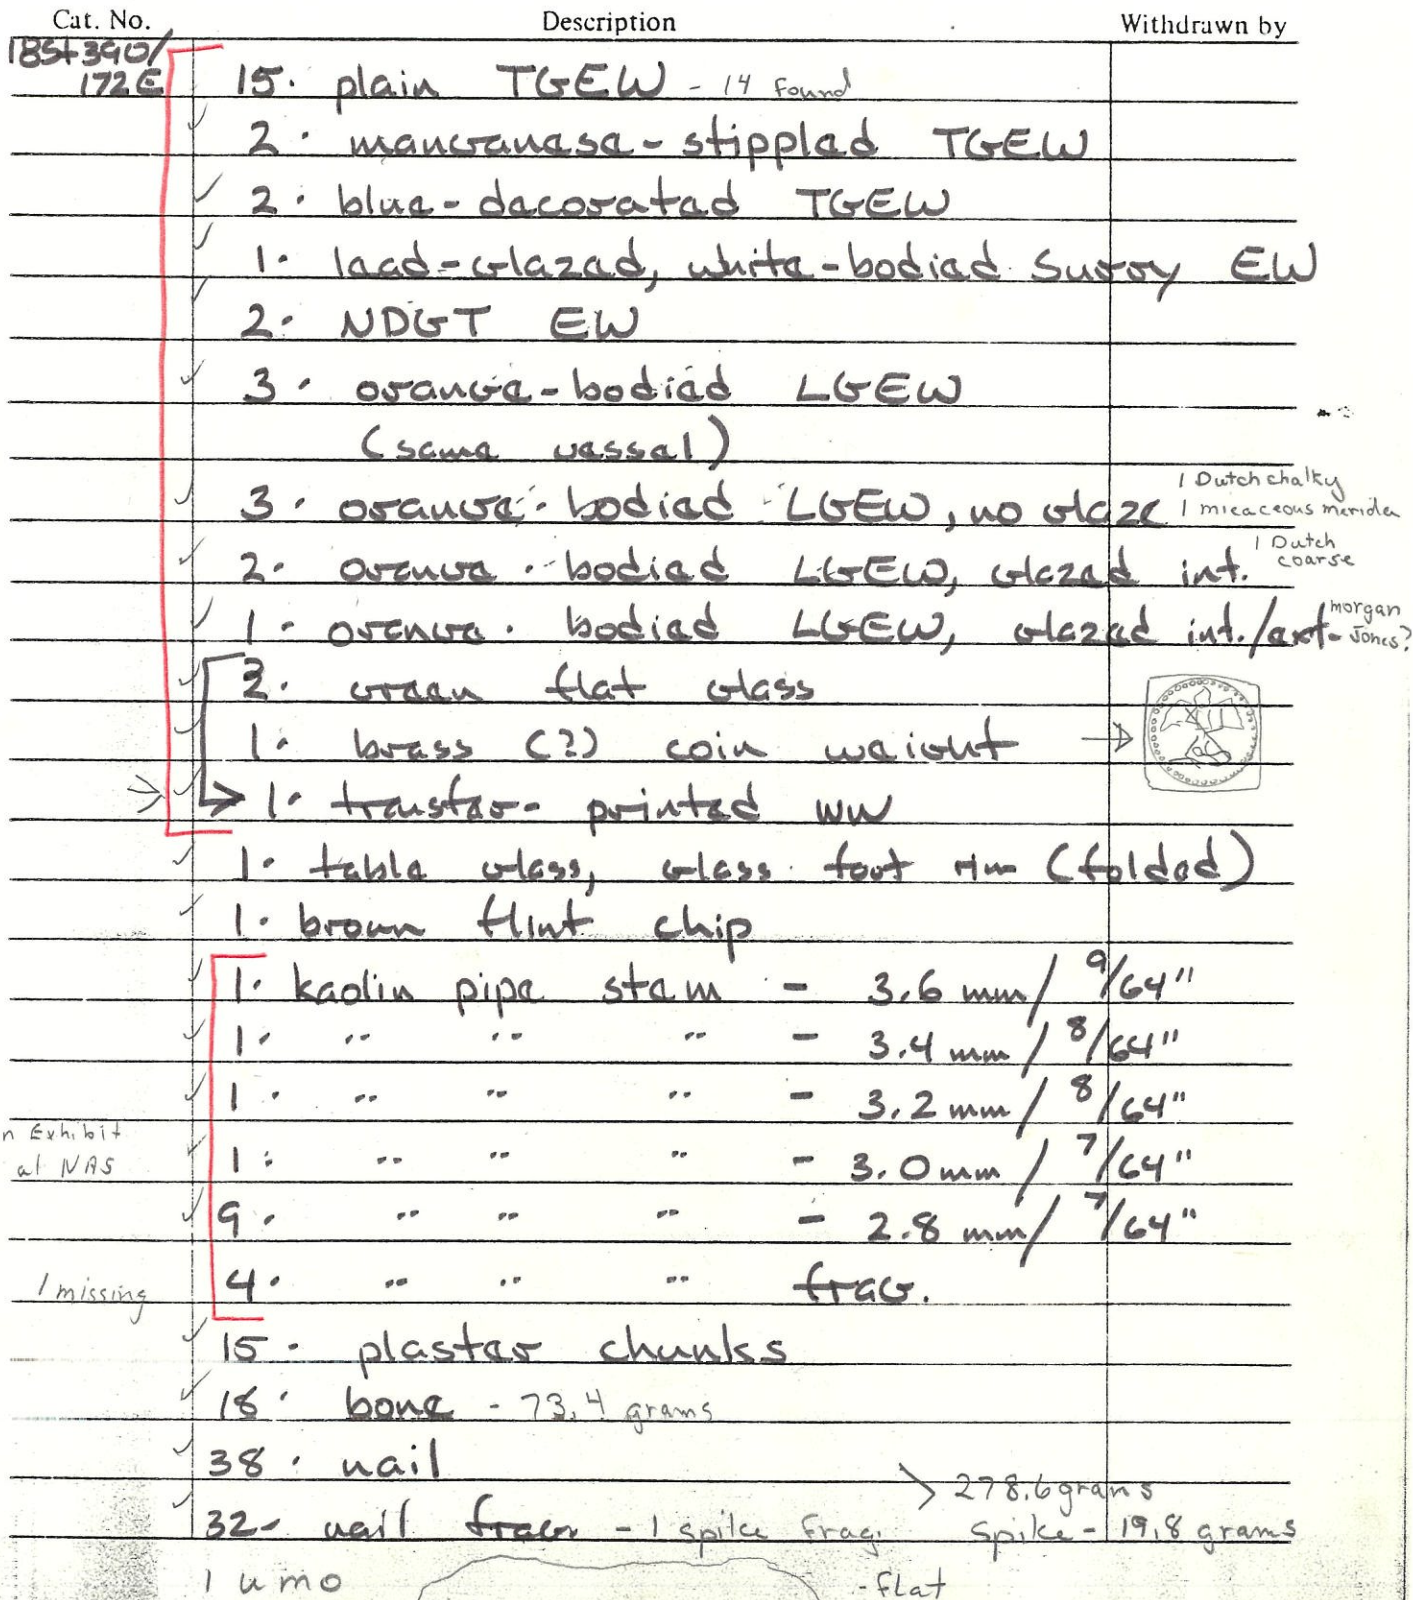 Cat. No. Description Withdrawn by
18St390/
172E 15. plain TGEW - 14 found
2. manganese-stippled TGEW
2. blue-decorated TGEW
1. lead-glazed, white-bodied Surry EW
2. NDGT EW
3. orange-bodied LGEW
(same vessel)
3. orange-bodied LGEW, no glaze 1 Dutch chalky
1 micaceous merida
2. orange-bodied LGEW, glazed int. 1 Dutch
coarse
1. orange-bodied LGEW, glazed int./ext- morgan
Jones?
2. green flat glass
1. brass (?) coin weight
1. transfer-printed WW
1. table glass, glass foot rim (folded)
1. brown flint chip
1. kaolin pipe stem - 3.6 mm / 9/64"
1. " " " - 3.4 mm / 8/64"
1. " " " - 3.2 mm / 8/64"
n Exhibit
at NAS
1. " " " - 3.0 mm / 7/64"
9. " " " - 2.8 mm / 7/64"
1 missing 4. " " " frag.
15. plaster chunks
18. bone - 73.4 grams
38. nail
> 278.6 grams
32- nail frag - 1 spike frag. Spike - 19.8 grams
1 umo - flat